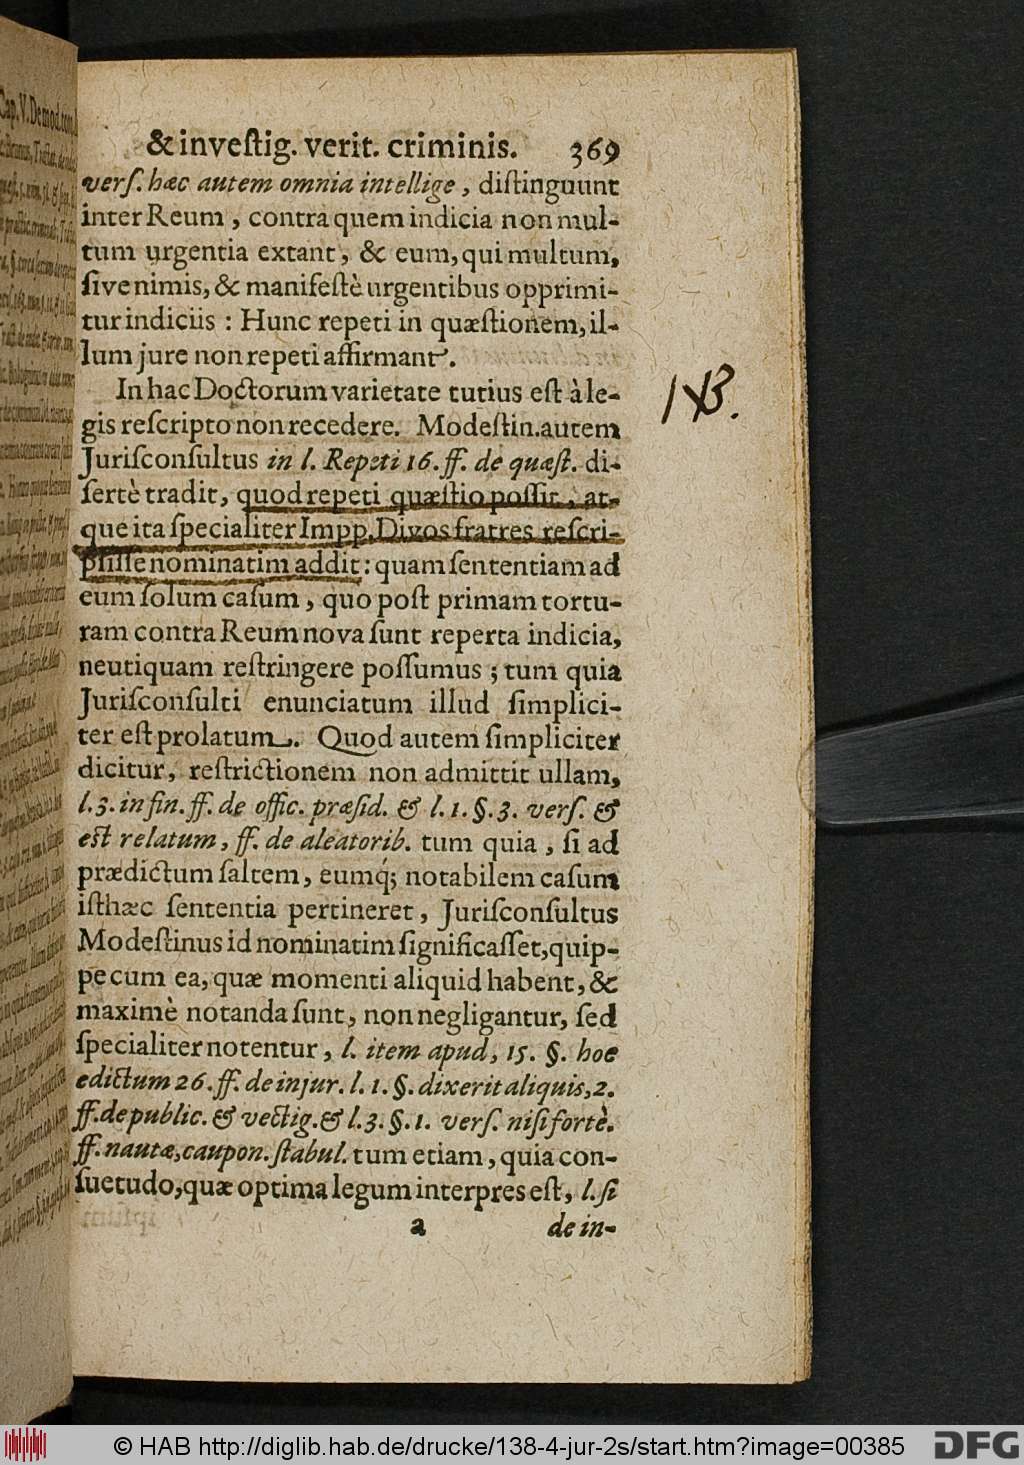 & inveſtig. verit. criminis. 369
verſ. hæc autem omnia intellige, diſtinguunt
inter Reum, contra quem indicia non mul-
tum urgentia extant, & eum, qui multum,
ſive nimis, & manifeſtè urgentibus opprimi-
tur indiciis : Hunc repeti in quæſtionem, il-
lum jure non repeti affirmant.
In hac Doctorum varietate tutius eſt à le-
gis reſcripto non recedere. Modeſtin. autem
Juriſconſultus in l. Repeti 16. ff. de quæſt. di-
ſertè tradit, quod repeti quæſtio poſſit, at-
que ita ſpecialiter Impp. Divos fratres reſcri-
pſiſſe nominatim addit: quam ſententiam ad
eum ſolum caſum, quo poſt primam tortu-
ram contra Reum nova ſunt reperta indicia,
neutiquam reſtringere poſſumus; tum quia
Juriſconſulti enunciatum illud ſimplici-
ter eſt prolatum. Quod autem ſimpliciter
dicitur, reſtrictionem non admittit ullam,
l. 3. in fin. ff. de offic. præſid. & l. 1. §. 3. verſ. &
eſt relatum, ff. de aleatorib. tum quia, ſi ad
prædictum ſaltem, eumq́; notabilem caſum
iſthæc ſententia pertineret, Juriſconſultus
Modeſtinus id nominatim ſignificaſſet, quip-
pe cum ea, quæ momenti aliquid habent, &
maximè notanda ſunt, non negligantur, ſed
ſpecialiter notentur, l. item apud, 15. §. hoc
edictum 26. ff. de injur. l. 1. §. dixerit aliquis, 2.
ff. de public. & vectig. & l. 3. §. 1. verſ. niſi fortè.
ff. nautæ, caupon. ſtabul. tum etiam, quia con-
ſuetudo, quæ optima legum interpres eſt, l. ſi
a de in-
© HAB http://diglib.hab.de/drucke/138-4-jur-2s/start.htm?image=00385
DFG